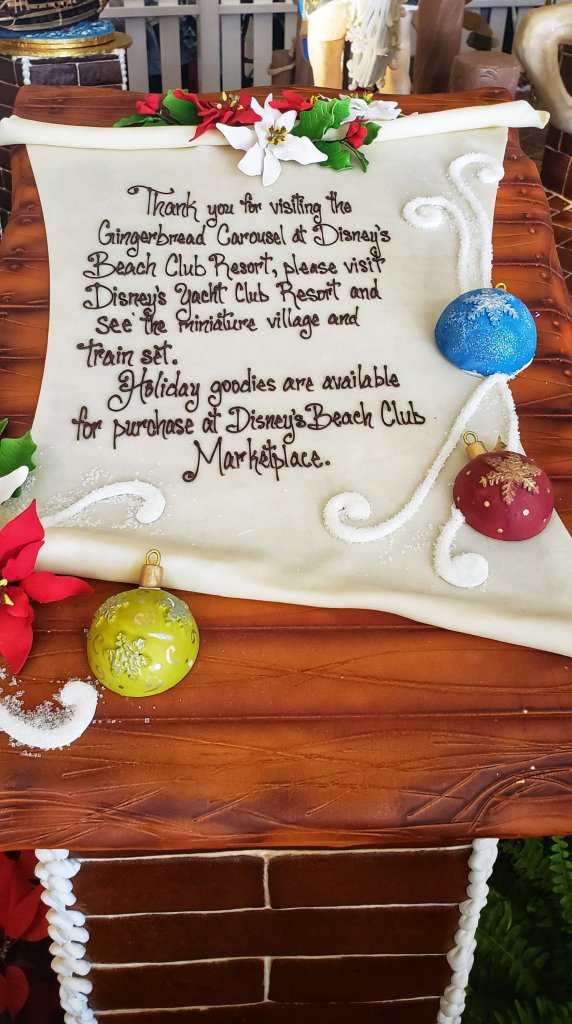 Thank you for visiting the
Gingerbread Carousel at Disney's
Beach Club Resort, please visit
Disney's Yacht Club Resort and
see the miniature village and
train set.
Holiday goodies are available
for purchase at Disney's Beach Club
Marketplace.